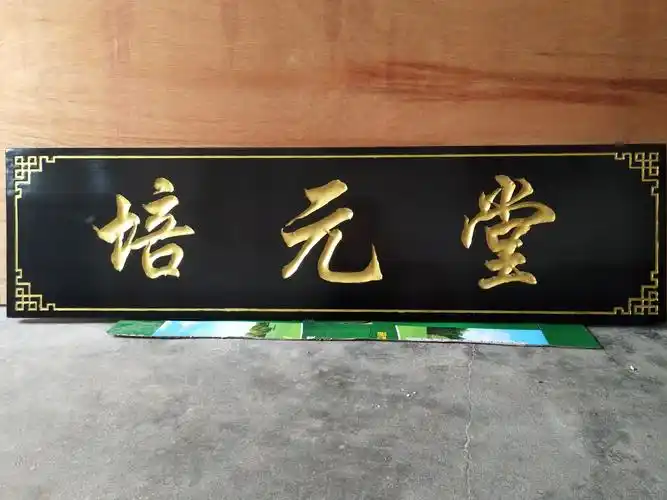 培元堂